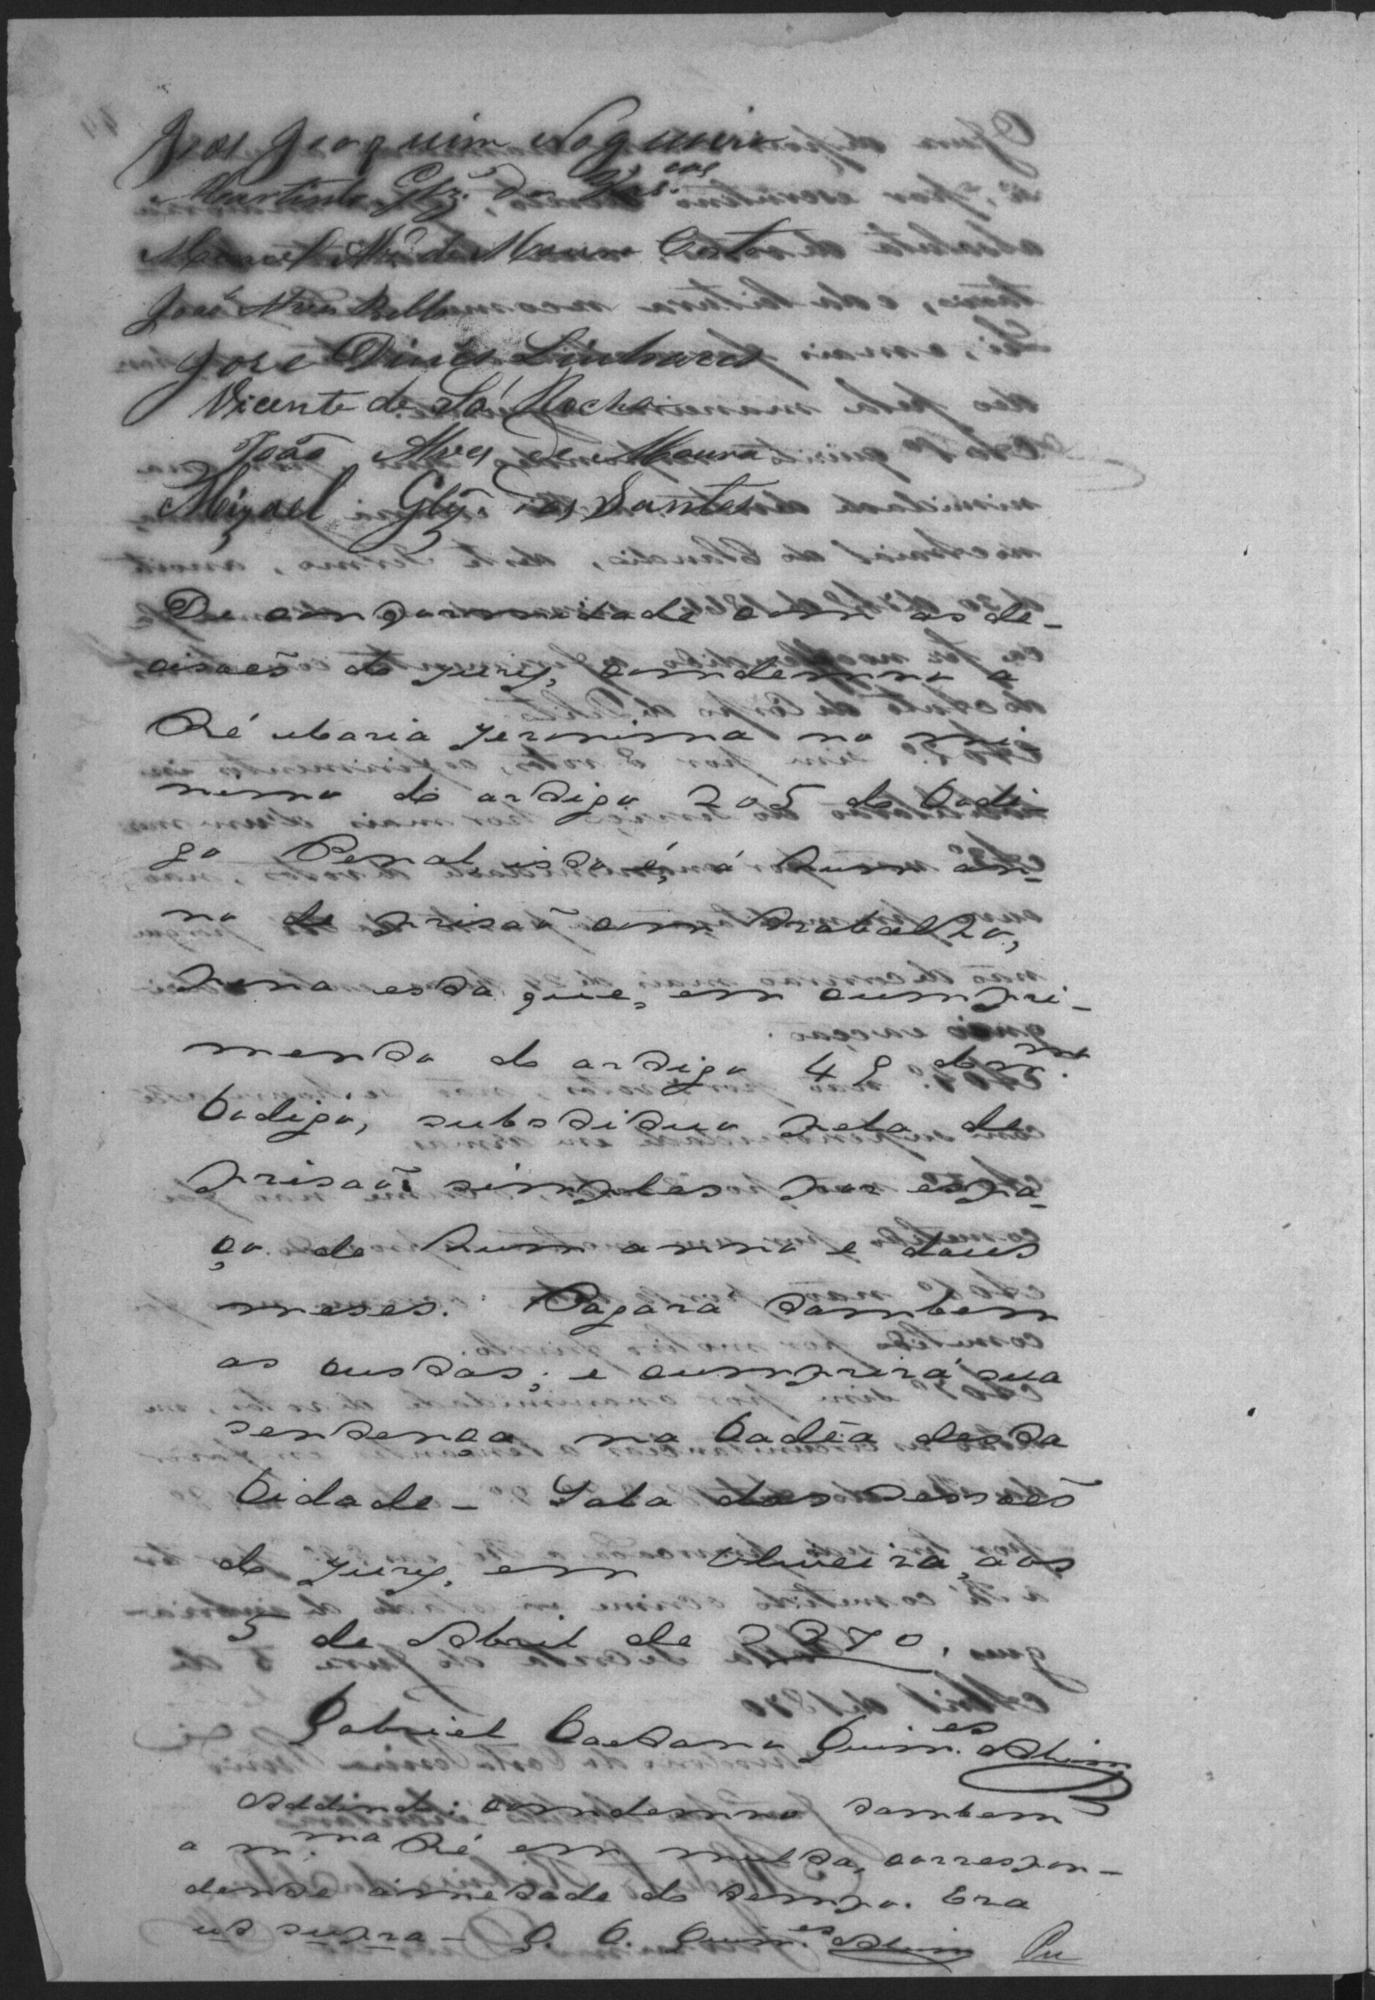 José Joaquim Nogueira
Martinho Glz.' dos
Manoel Alz.' de Moura Costa
José Alves Bello
José Diniz Linhares
Vicente de Sá Rocha
João Alves de Moura
Mizael Glz.' dos Santos
De conformidade com as de-
cisoẽs do jury, condemno a
Ré Maria Jeronima no mi
nemo do artigo 205 do Codi-
go Penal, isto é, á hum an-
no de prisaõ com trabalho,
pena esta que, em cumpri-
mento do artigo 49 do m.mo
Codigo, substituo pela de
prisaõ simples por espa-
ço de hum anno e dous
meses. Pagará tambem
as custas; e cumprirá sua
sentença na Cadêa desta
Cidade - Sala das Sessoẽs
do jury, em Oliveira, aos
5 de Abril de 1870.
Gabriel Caetano Guim.es Alvim
Addindo: condemno tambem
a m.ma Ré em multa, correspon-
dente á metade do tempo. Era
ut supra - G. C. Guim.es Alvim